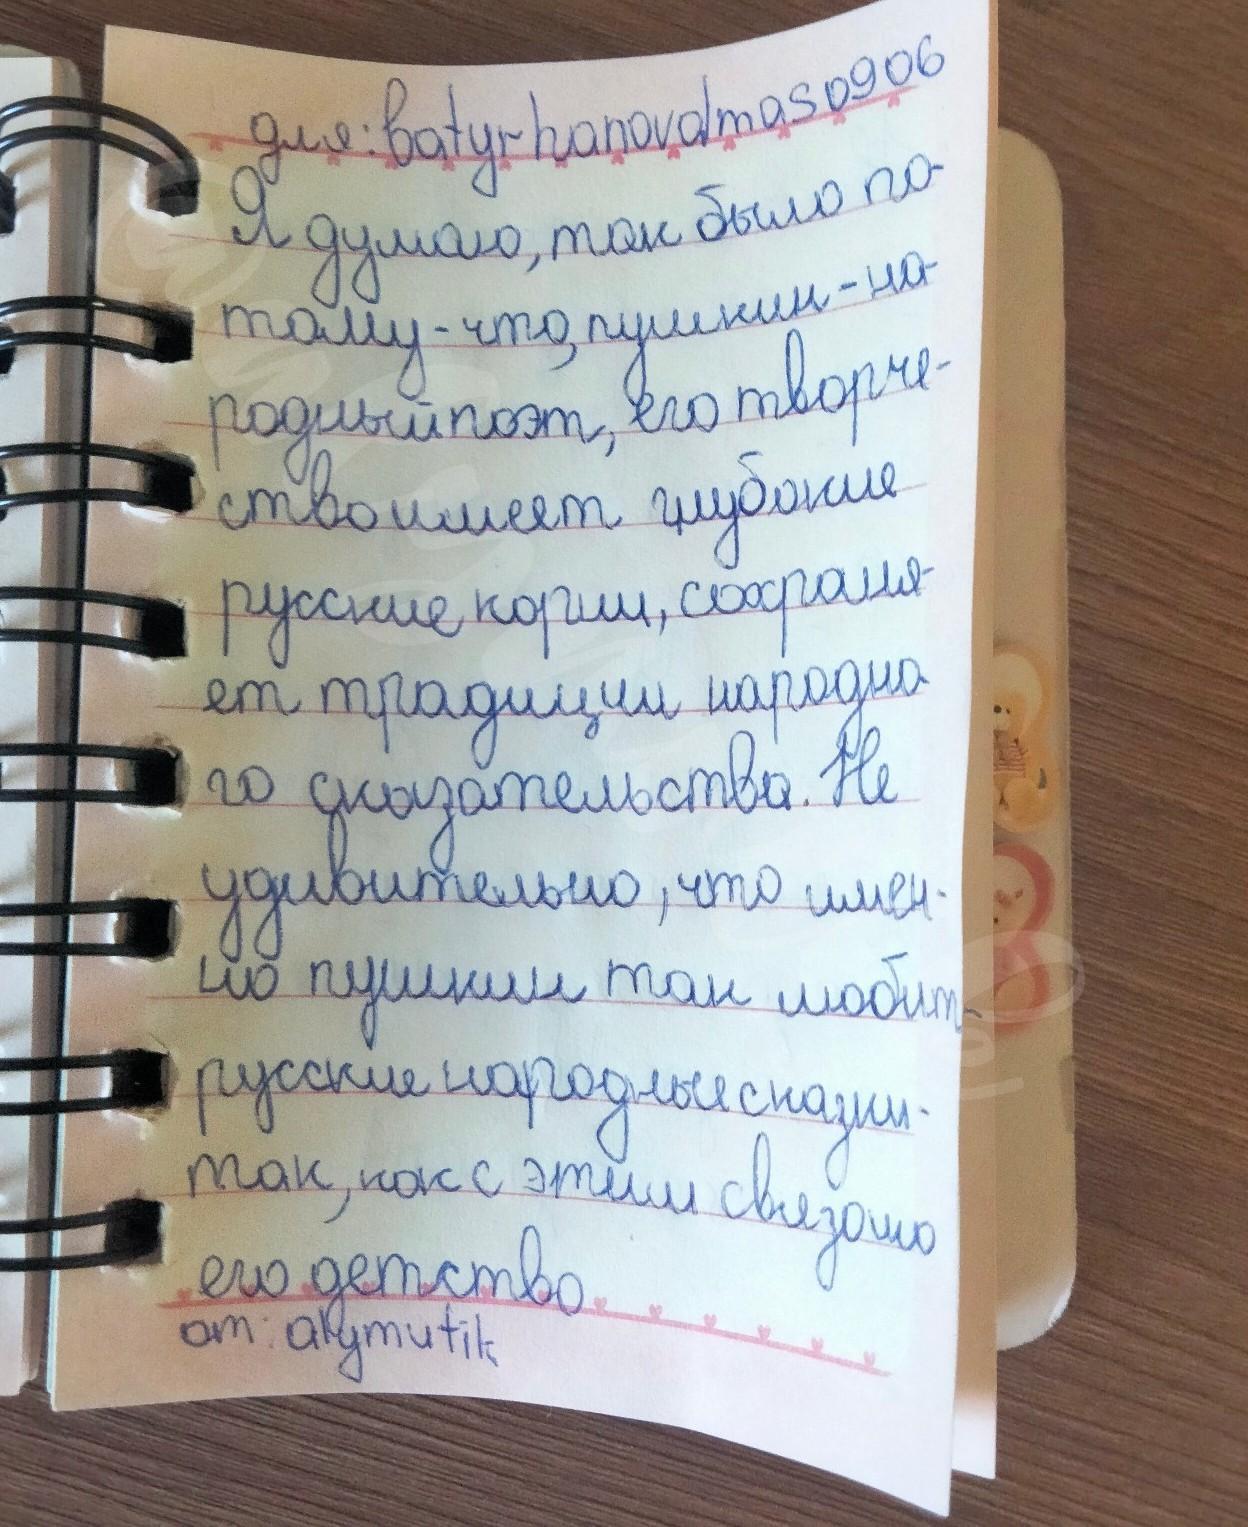 для: batyrhanovalmas0906
Я думаю, так было по-
тому-что, пушкин - на-
родный поэт, его творче-
ство имеет глубокие
русские корни, сохраня-
ет традиции народно-
го сказательства. Не
удивительно, что имен-
но пушкин так любит-
русские народные сказки.
так, как с этим связано
его детство
от: akymutik